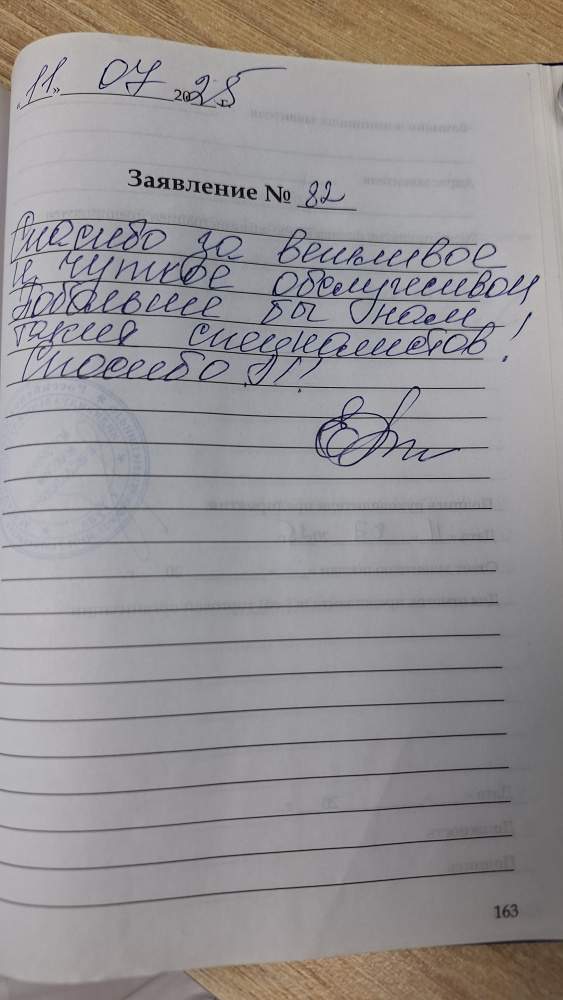 "11" 07 2025 г.
Заявление № 82
Спасибо за вежливое
и чуткое обслуживан
Побольше бы нам
таких специалистов!
Спасибо !!!
163